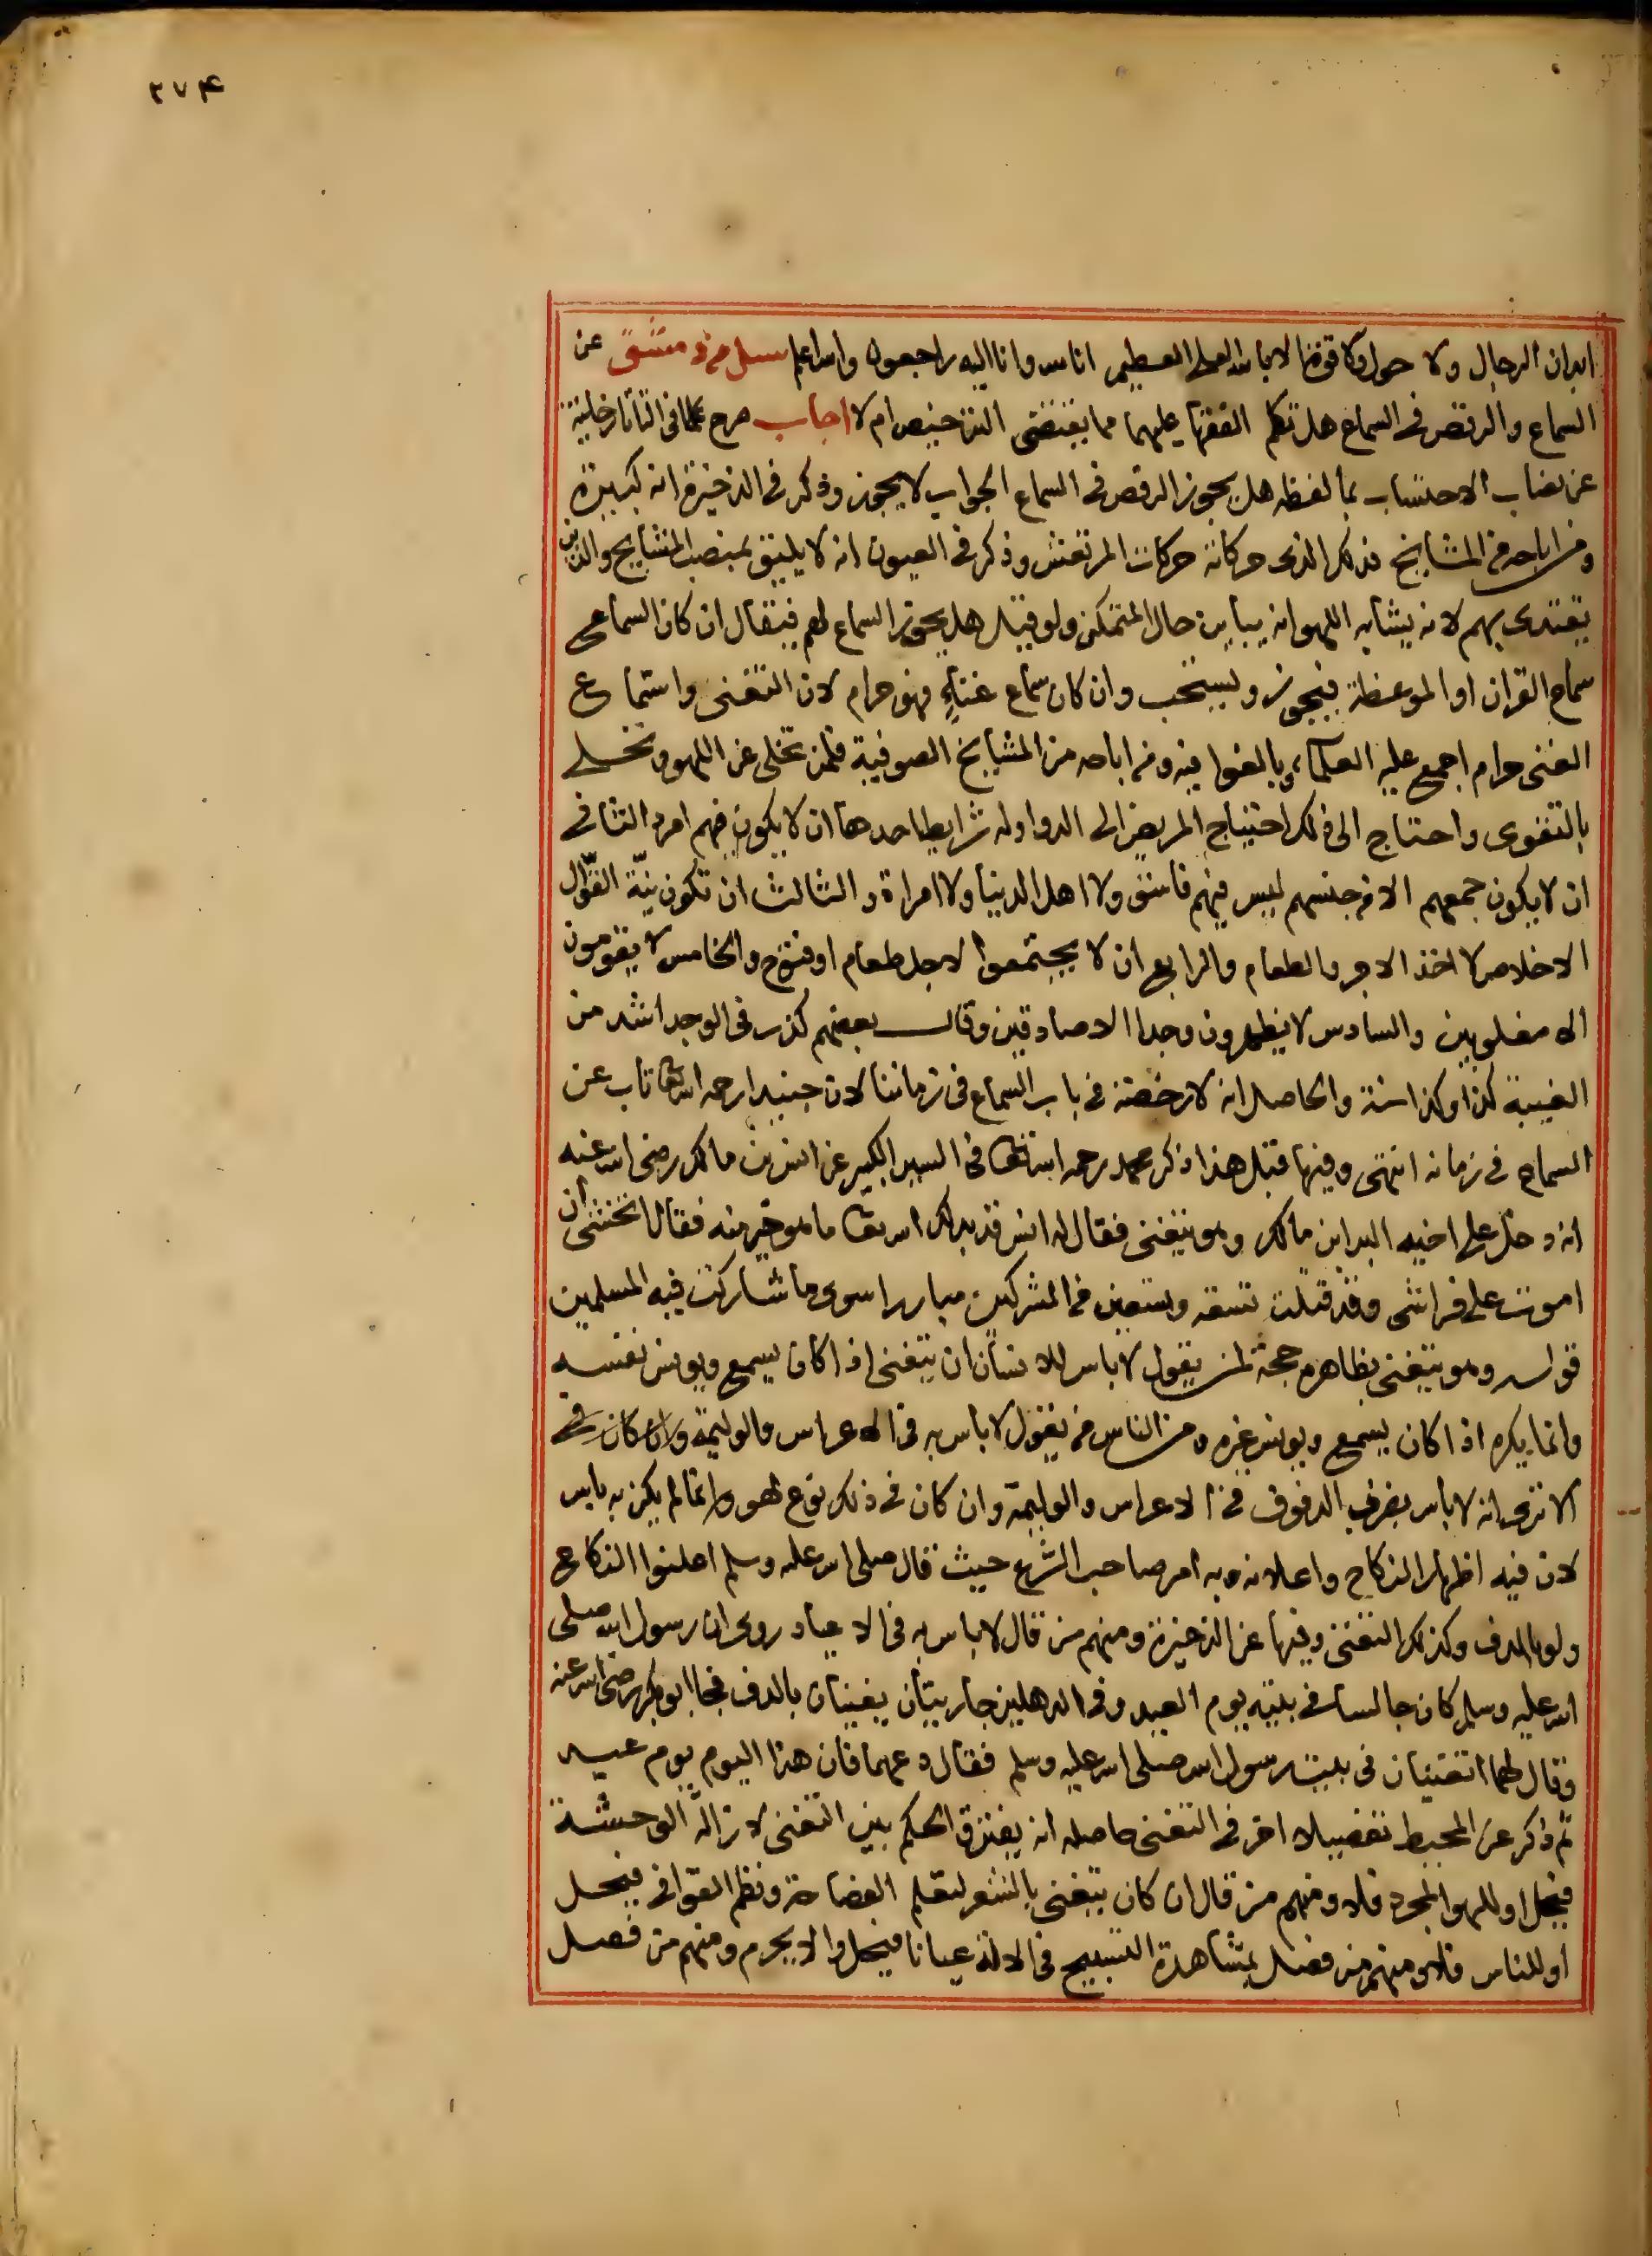 ٢٧۴
ابدان الرجال ولا حول ولا قوة الا بالله العلى العظيم انا لله وانا اليه راجعون والله اعلم سئل من دمشق عن
السماع والرقص فى السماع هل تكلم الفقها عليهما مما يقتضى الترخيص ام لا اجاب صرح علما فى التاتارخانية
عن نصاب الاحتساب بما لفظه هل يجوز الرقص فى السماع الجواب لا يجوز وذكر فى الذخيرة انه كبيرة
ومن اباحه من المشايخ فذلك الذى حركاته حركات المرتعش وذكر فى العيون انه لا يليق بمنصب المشايخ والذين
يقتدى بهم لانه يشابه اللهو انه يباين حال المتمكن ولو قيل هل يجوز السماع لهم فيقال ان كان السماع
سماع القران او الموعظة فيجوز ويستحب وان كان سماع غناء فهو حرام لان التغنى واستماع
الغنى حرام اجمع عليه العلماء وبالغوا فيه ومن اباحه من المشايخ الصوفية فلمن تخلى عن اللهو وتحلى
بالتقوى واحتاج الى ذلك احتياج المريض الى الدوا وله شرايط احدها ان لا يكون فيهم امرد الثانى
ان لا يكون جمعهم الا من جنسهم ليس فيهم فاسق ولا اهل الدنيا ولا امراة والثالث ان تكون نية القوال
الاخلاص لا اخذ الاجر والطعام والرابع ان لا يجتمعوا لاجل طعام او فتوح والخامس لا يقومون
الا مغلوبين والسادس لا يظهرون وجدا الا صادقين وقال بعضهم كذب فى الوجد اشد من
الغيبة كذا وكذا سنة والحاصل انه لا رخصة فى باب السماع فى زماننا لان جنيدا رحمه الله تعا تاب عن
السماع فى زمانه انتهى وفيها قبل هذا ذكر محمد رحمه الله تعا فى السير الكبير عن انس بن مالك رضى الله عنه
انه دخل على اخيه البرا بن مالك وهو يتغنى فقال له انس قد بدلك الله تعا ما هو خير منه فقال اتخشى ان
اموت على فراشى وقد قتلت تسعة وتسعين من المشركين مبارزا سوى ما شاركت فيه المسلمين
قوله وهو يتغنى بظاهره حجة لمن يقول لا باس للانسان ان يتغنى اذا كان يسمع ويونس نفسه
وانما يكره اذا كان يسمع ويونس غيره ومن الناس من يقول لا باس به فى الاعراس والوليمة وان كان فى
الا ترى انه لا باس بضرب الدفوف فى الاعراس والوليمة وان كان فى ذلك نوع لهو وانما لم يكن به باس
لان فيه اظهار النكاح واعلانه وبه امر صاحب الشرع حيث قال صلى الله عليه وسلم اعلنوا النكاح
ولو بالدف وكذلك التغنى وفيها عن الذخيرة ومنهم من قال لا باس به فى الاعياد روى ان رسول الله صلى
الله عليه وسلم كان جالسا فى بيته يوم العيد وفى الدهليز جاريتان يغنيان بالدف فجا ابو بكر رضى الله عنه
وقال لهما اتغنيان فى بيت رسول الله صلى الله عليه وسلم فقال دعهما فان هذا اليوم يوم عيد
ثم ذكر عن المحيط تفصيلا اخر فى التغنى حاصله انه يفترق الحكم بين التغنى لازالة الوحشة
فيحل او للهو المجرد فلا ومنهم من قال ان كان يتغنى بالشعر ليتعلم الفصاحة ونظم القوافى فيحل
او للناس فلا ومنهم من فصل بمشاهدة التسبيح فى الالة عيانا فيحل والا يحرم ومنهم من فصل